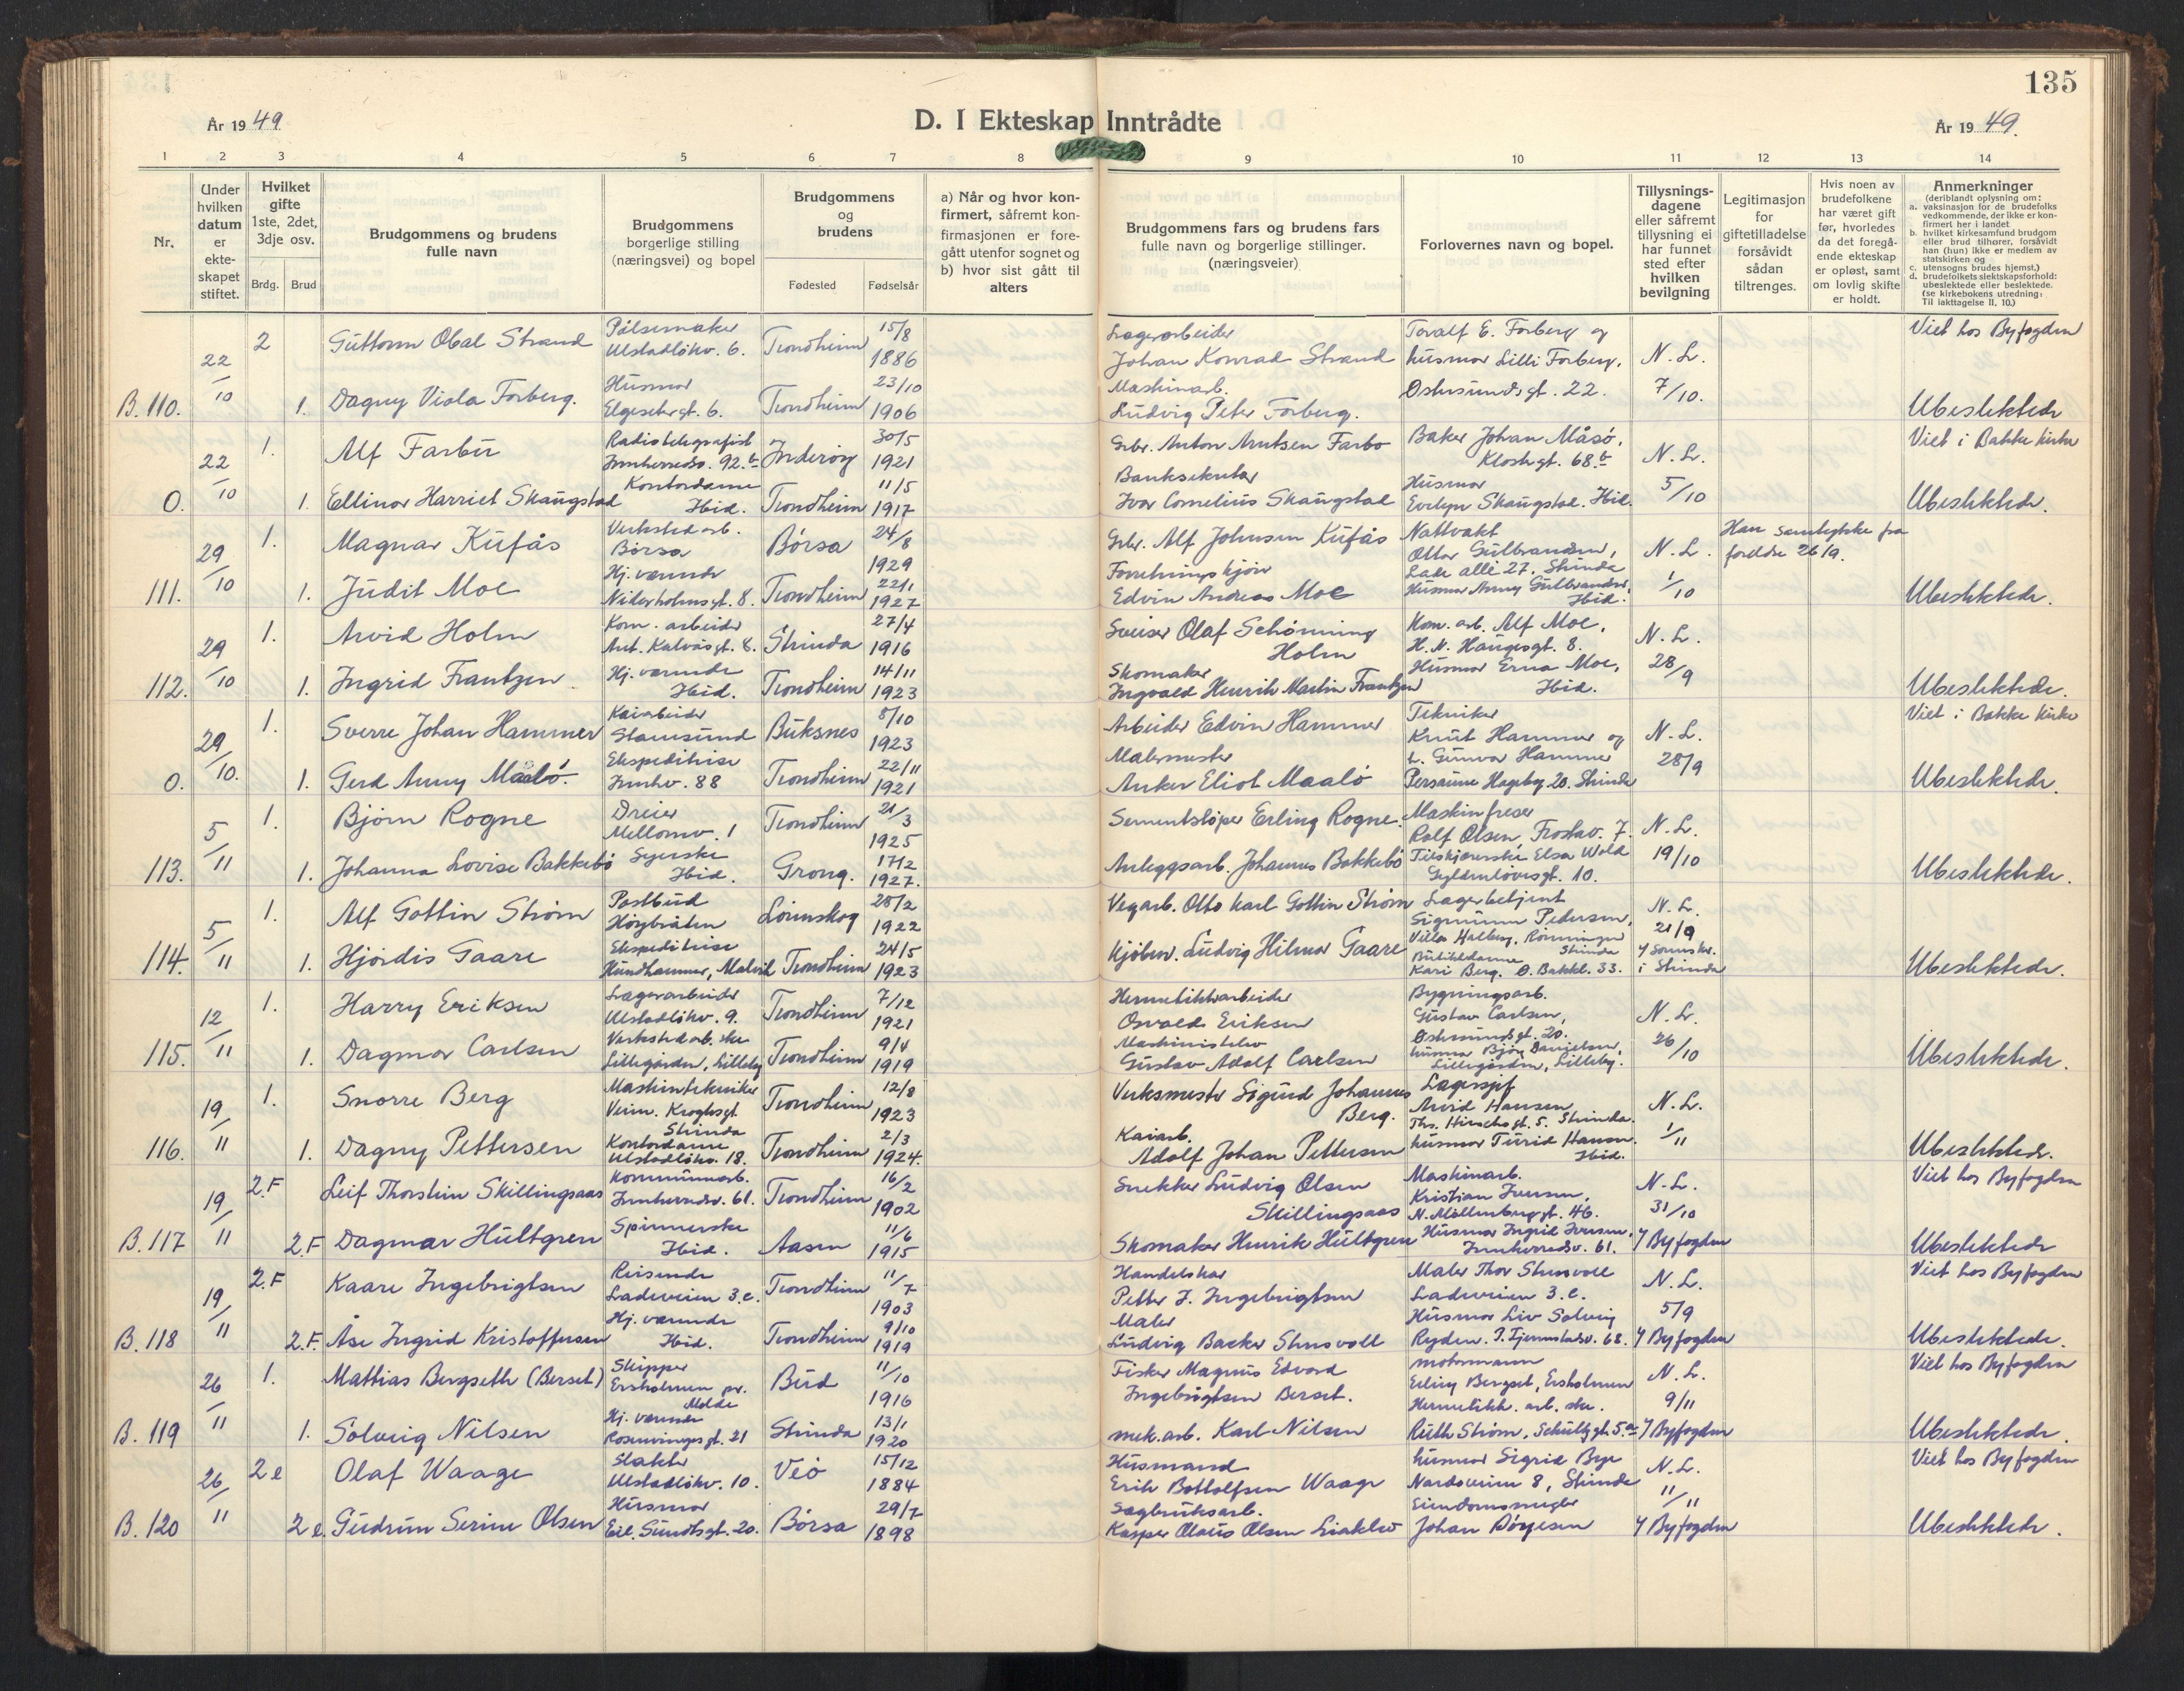 135
År 1949.
D. I Ekteskap Inntrådte
År 1949.
1 2 3 4 5 6 7 8 9 10 11 12 13 14
Nr.
Under hvilken datum er ekte-skapet stiftet.
Hvilket gifte 1ste, 2det, 3dje osv.
Brdg. Brud
Brudgommens og brudens fulle navn
Brudgommens borgerlige stilling (næringsvei) og bopel
Brudgommens og brudens
Fødested Fødselsår
a) Når og hvor kon-firmert, såfremt kon-firmasjonen er fore-gått utenfor sognet og b) hvor sist gått til alters
Brudgommens fars og brudens fars fulle navn og borgerlige stillinger. (næringsveier)
Forlovernes navn og bopel.
Tillysnings-dagene eller såfremt tillysning ei har funnet sted efter hvilken bevilgning
Legitimasjon for giftetilladelse forsåvidt sådan tiltrenges.
Hvis noen av brudefolkene har været gift før, hvorledes da det foregå-ende ekteskap er opløst, samt om lovlig skifte er holdt.
Anmerkninger
(deriblandt oplysning om:
a. vaksinasjon for de brudefolks vedkommende, der ikke er kon-firmert her i landet.
b. hvilket kirkesamfund brudgom eller brud tilhører, forsåvidt han (hun) ikke er medlem av statskirken og
c. utensogns brudes hjemst.)
d. brudefolkets slektskapsforhold: ubeslektede eller beslektede. (se kirkebokens utredning: Til iakttagelse II, 10.)
B. 110. 22/10
2 Guttorm Obal Strand Pølsemaker Ulstadløkv. 6. Trondheim 15/8 1886
Lagerarbeider Johan Konrad Strand
Toralf E. Forberg og husmor Lilli Forberg, Østersundsgt. 22.
N. L. 7/10.
Viet hos Byfogden
1. Dagny Viola Forberg. Husmor Elgesetergt. 6. Trondheim 23/10 1906
Maskinarb. Ludvig Peter Forberg.
Ubeslektede
0. 22/10
1. Alf Farbu Radiotelegrafist Innherredsv. 92.b Inderøy 30/5 1921
Gbr. Anton Arntsen Farbo
Baker Johan Måsø, Klostergt. 68.b
N. L. 5/10
Viet i Bakke kirke
1. Ellinor Harriet Skaugstad Kontordame Ibid. Trondheim 11/5 1917
Banksekretær Ivar Cornelius Skaugstad
Husmor Evelyn Skaugstad. Ibid.
Ubeslektede.
111. 29/10
1. Magnar Kufås Verkstedarb. Børsa Børsa 24/8 1929
Gbr. Alf Johnsen Kufås
Nattvakt Ottar Gulbrandsen, Lade allé 27, Strinda
N. L. 1/10
Han samtykke fra foreldre 26/9.
1. Judit Moe Hj. værende Nidarholmsgt. 8. Trondheim 22/1 1927
Forretningskjører Edvin Andreas Moe
Husmor Anny Gulbrandsen, Ibid.
Ubeslektede.
112. 29/10
1. Arvid Holm Kom. arbeider Ant. Kalvåsgt. 8. Strinda 27/4 1916
Sveiser Olaf Schönning Holm
Kom. arb. Alf Moe, H. N. Haugesgt. 8.
N. L. 28/9
1. Ingrid Frantzen Hj. værende Ibid. Trondheim 14/11 1923
Skomaker Ingvald Henrik Martin Frantzen
Husmor Erna Moe, Ibid.
Ubeslektede.
0. 29/10.
1. Sverre Johan Hammer Kaiarbeider Stamsund Buksnes 8/10 1923
Arbeider Edvin Hammer
Tekniker Knut Hammer og
N. L. 28/9
Viet i Bakke Kirke
1. Gerd Anny Maalø. Ekspeditrise Innhv. 88 Trondheim 22/11 1921
Malermester Anker Eliot Maalø
h. Gunvor Hammer Persaune Hageby 20. Strinda
Ubeslektede.
113. 5/11
1. Bjørn Rogne Dreier Mellomv. 1 Trondheim 21/3 1925
Sementstøper Erling Rogne.
Maskinfreser Rolf Olsen, Frostav. 7.
N. L. 19/10
1. Johanna Lovise Bakkebø Syerske Ibid. Grong. 17/2 1927.
Anleggsarb. Johannes Bakkebø
Tilskjærerske Elsa Wold Gyldenløvesgt. 10.
Ubeslektede.
114. 5/11
1. Alf Gottin Strøm Postbud Høybråten Lørenskog 28/2 1922
Vegarb. Otto Karl Gottin Strøm
Lagerbetjent Sigmunn Pedersen, Villa Halberg, Rønningen Strinda
N. L. 21/9
1. Hjørdis Gaare Ekspeditrise Hundhammer, Malvik Trondheim 24/5 1923
Kjøbm. Ludvig Hilmar Gaare
Butikkdame Kari Berg. Ø. Bakkl. 33.
i Strinda
Ubeslektede.
115. 12/11
1. Harry Eriksen Lagerarbeider Ulstadløkv. 9. Trondheim 7/12 1921
Hermetikkarbeider Osvald Eriksen
Bygningsarb. Gustav Carlsen, Østersundsgt. 20.
N. L. 26/10
1. Dagmar Carlsen Verkstedarb.ske Lillegården, Lilleby Trondheim 9/4 1919
Maskinistelev Gustav Adolf Carlsen
husmor Bjørg Danielsen, Lillegården, Lilleby.
Ubeslektede.
116. 19/11
1. Snorre Berg Maskintekniker Veim. Kroghsgt. Strinda Trondheim 12/8 1923
Verksmester Sigurd Johannes Berg.
Lagersjef Arvid Hansen, Ths. Hirschsgt. 5. Strinda.
N. L. 1/11
1. Dagny Pettersen Kontordame Ulstadløkv. 18. Trondheim 2/3 1924.
Kaiarb. Adolf Johan Pettersen
husmor Turid Hansen. Ibid.
Ubeslektede.
B. 117 19/11
2. F Leif Thorstein Skillingsaas Kommunearb. Innherredsv. 61. Trondheim 16/2 1902
Snekker Ludvig Olsen Skillingsaas
Maskinarb. Kristian Iversen, N. Møllenberggt. 46.
N. L. 31/10
Viet hos Byfogden
2. F Dagmar Hultgren Spinnerske Ibid. Aasen 11/6 1915
Skomaker Henrik Hultgren
Husmor Ingrid Iversen, Innherredsv. 61.
Byfogden
Ubeslektede
B. 118 19/11
2. F Kaare Ingebrigtsen Reisende Ladeveien 3.c. Trondheim 11/7 1903
Handelskar Petter J. Ingebrigtsen
Maler Thor Stensvoll Ladeveien 3.c.
N. L. 5/9
Viet hos Byfogden
2. F. Åse Ingrid Kristoffersen Hj. værende Ibid. Trondheim 9/10 1919
Maler Ludvig Backer Stensvoll
Husmor Liv Solveig Ryden. 68.
Byfogden
Ubeslektede.
B. 119 26/11
1. Mattias Bergseth (Berset) Skipper Ersholmen pr. Molde Bud 11/10 1916
Fisker Magnus Edvard Ingebrigtsen Berset.
motormann Eiling Bergset, Ersholmen
N. L. 9/11
Viet hos Byfogden
1. Solveig Nilsen Hj. værende Rosenvingesgt. 21 Strinda 13/1 1920
mek.arb. Karl Nilsen
Hermetikk. arb. ske. Ruth Strøm, Schultzgt. 5.a
Byfogden
Ubeslektede.
B. 120 26/11
2 e Olaf Waage Slakter Ulstadløkv. 10. Veø 15/12 1884
Husmand Erik Bottolfsen Waage
husmor Sigrid Bye Nardoveien 8, Strinda
N. L. 11/11
Viet hos Byfogden
2 e. Gudrun Serine Olsen Husmor Eil. Sundtsgt. 20. Børsa 29/7 1898
Sagbruksarb. Kasper Olaus Olsen Liaklev
Eiendomsmegler Johan Børresen
Byfogden
Ubeslektede.